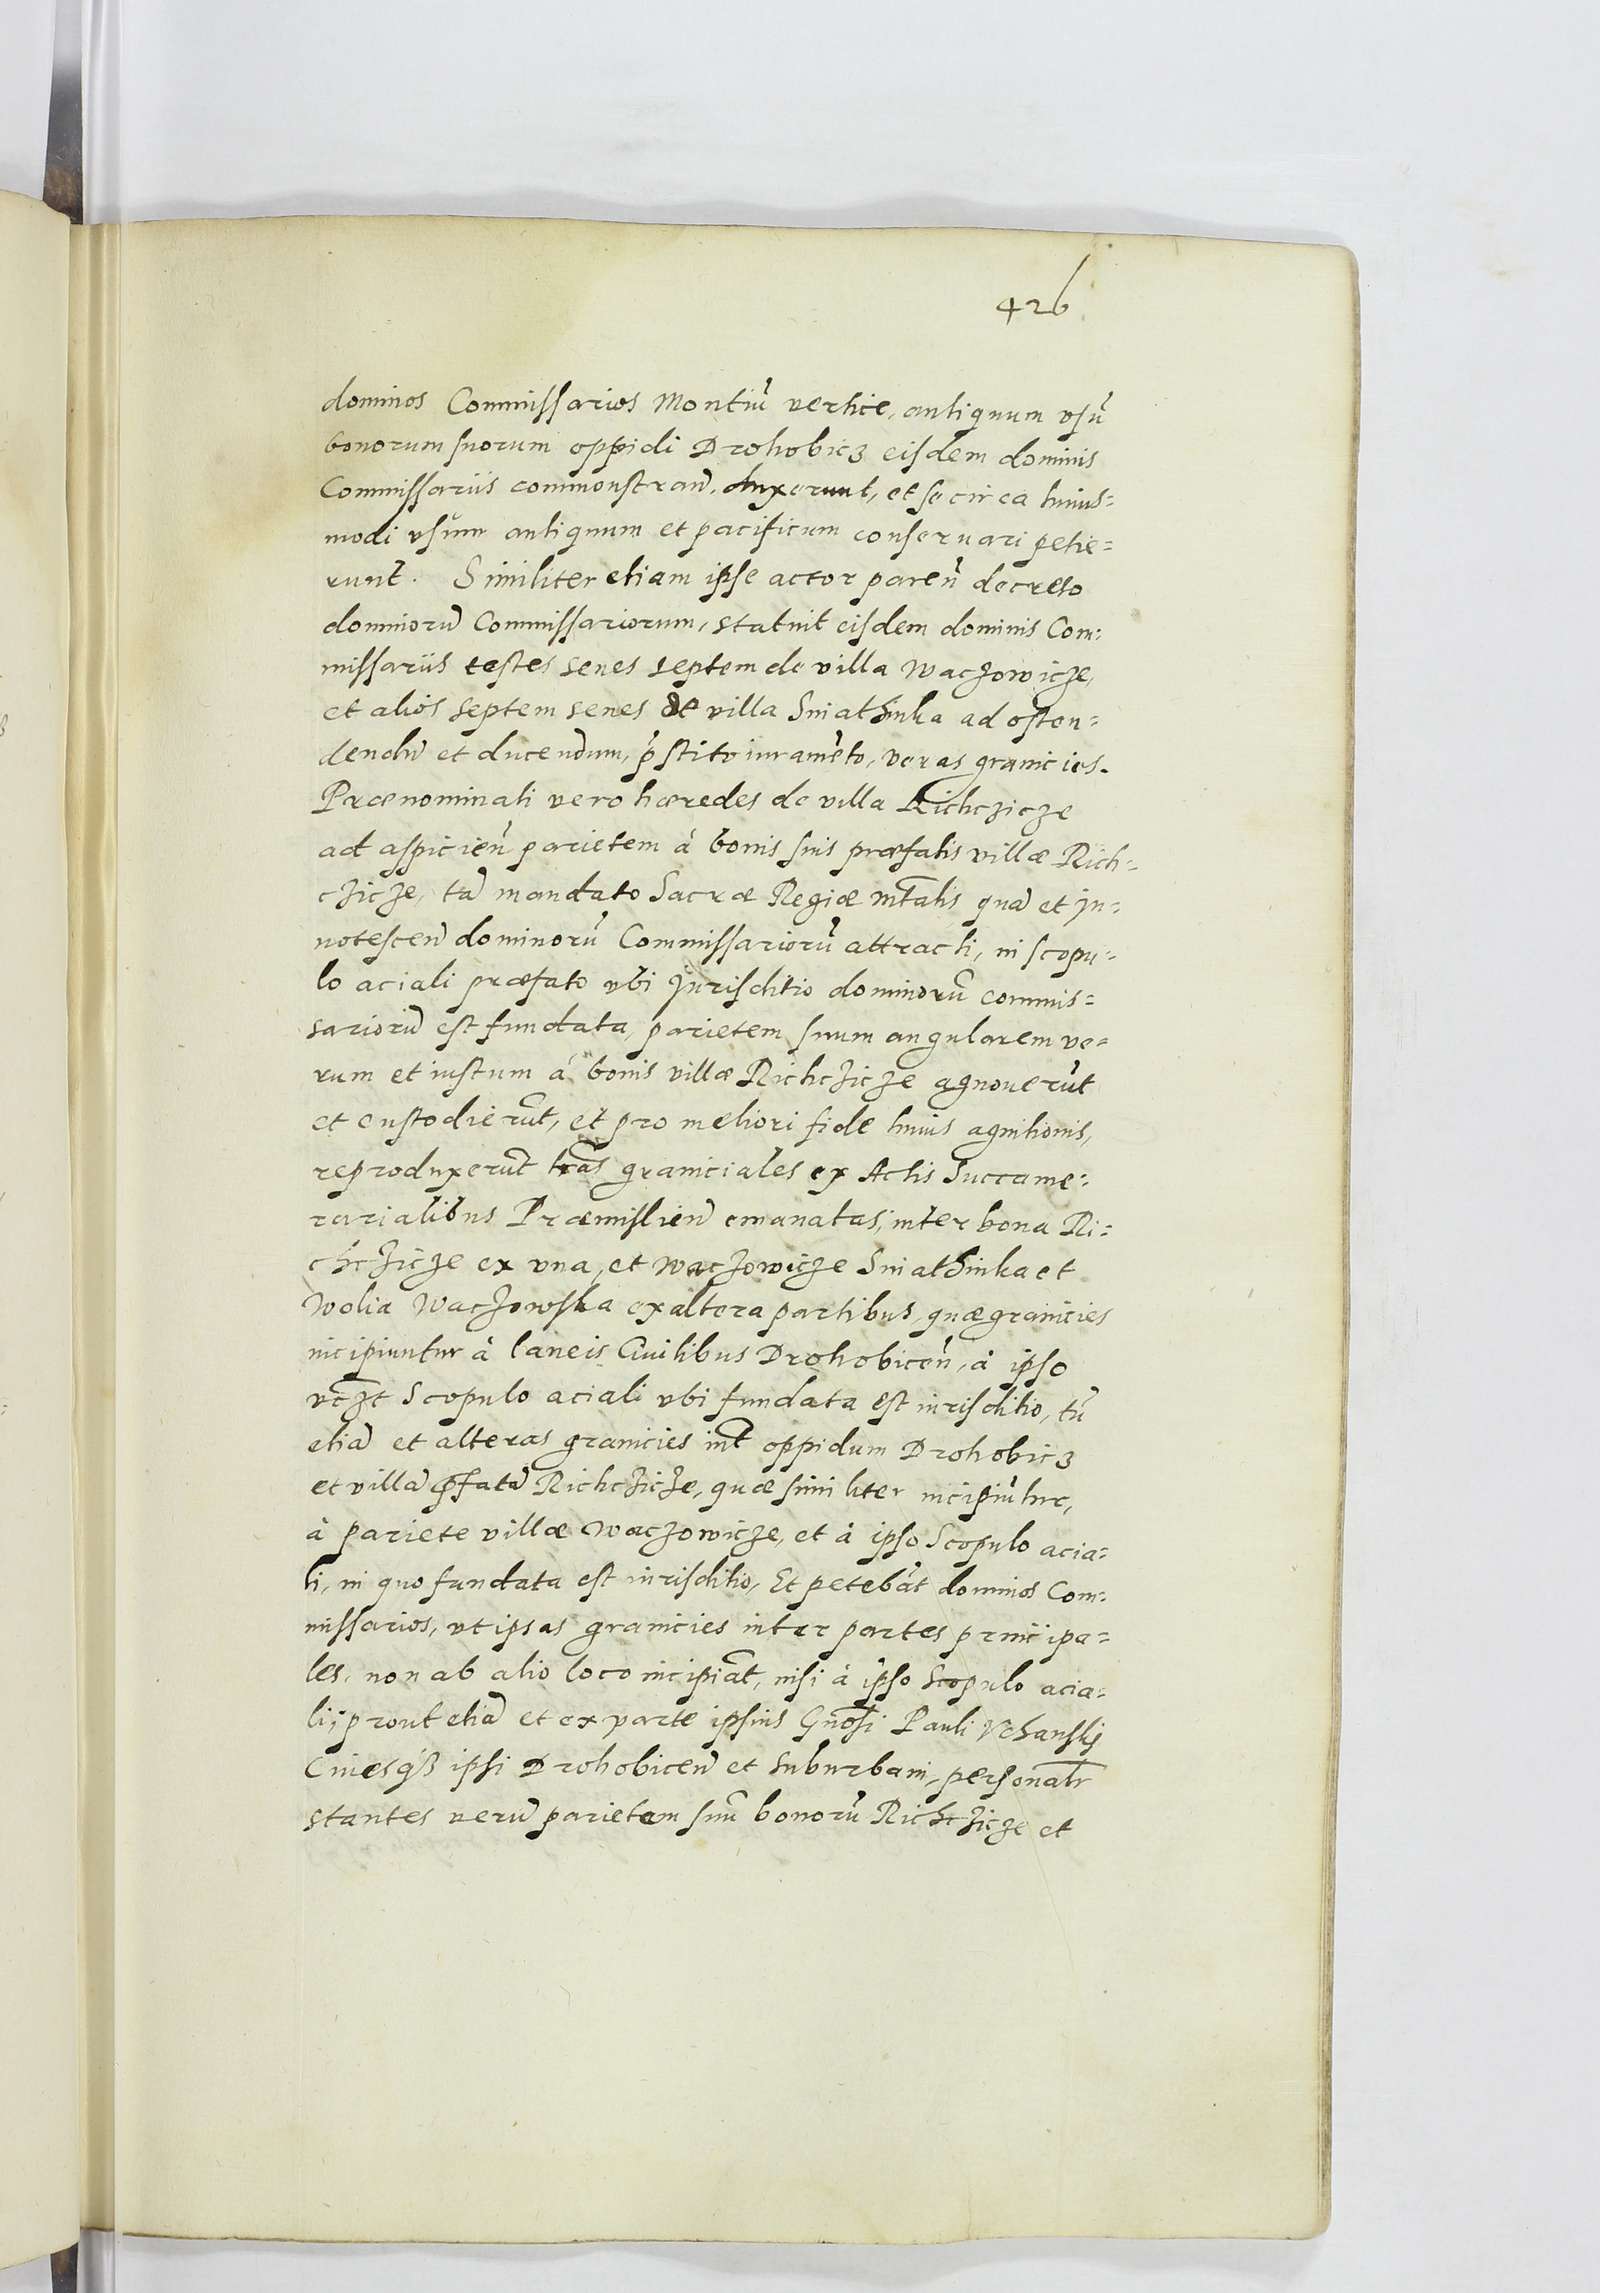 426
dominos Commissarios Montiū vertice, antiquum vsū
bonorum suorum oppidi Drohobicz eisdem dominis
Commissariis commonstran̄. duxerunt, et se circa huius=
modi vsum antiquum et pacificum conseruari petie=
runt. Similiter etiam ipse actor paren̄ decreto
dominorū Commissariorum, statuit eisdem dominis Com=
missariis testes senes septem de villa Waczowicze,
et alios septem senes de villa Sniathinka ad osten=
dendū et ducendum, p̄stito iuramēto, veras granicies.
Prænominati vero hæredes de villa Richczicze
ad aspicien̄ parietem à bonis suis præfatis villæ Rich=
czicze, tā mandato Sacræ Regiæ mtatis quā et in=
notescen̄ dominorū Commissariorū attracti, in scopu=
lo aciali præfato vbi iurisditio dominorū commis=
sariorū est fundata, parietem suum angularem ve=
rum et iustum à bonis villæ Richczicze agnouerūt
et custodierūt, et pro meliori fide huius agnitionis,
reproduxerūt lr̄as graniciales ex Actis Succame=
rarialibus Præmislien̄ emanatas, inter bona Ri=
chczicze ex vna, et Waczowicze Sniathinka et
Wolia Waczowska ex altera partibus, quæ granicies
incipiuntur à laneis Ciuilibus Drohobicen̄, à ipso
vczt Scopulo aciali vbi fundata est iurisditio, tū
etiā et alteras granicies int̄ oppidum Drohobicz
et villā p̄fatā Richczicze, quæ similiter incipiūtur,
à pariete villæ Waczowicze, et à ipso Scopulo acia=
li, in quo fundata est iurisditio, Et petebāt dominos Com=
missarios, vt ipsas granicies inter partes principa=
les, non ab alio loco incipiāt, nisi à ipso Scopulo acia=
li, prout etiā et ex parte ipsius Gnosi Pauli Vchanskij
Ciuesqȝ ipsi Drohobicen̄ et suburbani, personalr̄
stantes verū parietem suū bonorū Richczicze et